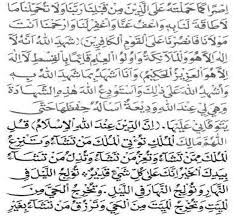 إِصْرًا كَمَا حَمَلْتَهُ عَلَى الَّذِينَ مِنْ قَبْلِنَا رَبَّنَا وَلَا تُحَمِّلْنَا مَا
لَا طَاقَةَ لَنَا بِهِ وَاعْفُ عَنَّا وَاغْفِرْ لَنَا وَارْحَمْنَا أَنْتَ
مَوْلَانَا فَانْصُرْنَا عَلَى الْقَوْمِ الْكَافِرِينَ (شَهِدَ اللَّهُ أَنَّهُ لَا
إِلَهَ إِلَّا هُوَ وَالْمَلَائِكَةُ وَأُولُو الْعِلْمِ قَائِمًا بِالْقِسْطِ لَا إِلَهَ
إِلَّا هُوَ الْعَزِيزُ الْحَكِيمُ) وَأَنَا أَشْهَدُ بِمَا شَهِدَ اللَّهُ بِهِ
وَأُشْهِدُ اللَّهَ عَلَى ذَلِكَ وَأَسْتَوْدِعُ اللَّهَ هَذِهِ الشَّهَادَةَ
وَهِيَ لِي عِنْدَ اللَّهِ وَدِيعَةٌ أَسْأَلُهُ حِفْظَهَا حَتَّى
يَتَوَفَّانِي عَلَيْهَا. (إِنَّ الدِّينَ عِنْدَ اللَّهِ الْإِسْلَامُ) قُلِ
اللَّهُمَّ مَالِكَ الْمُلْكِ تُؤْتِي الْمُلْكَ مَنْ تَشَاءُ وَتَنْزِعُ
الْمُلْكَ مِمَّنْ تَشَاءُ وَتُعِزُّ مَنْ تَشَاءُ وَتُذِلُّ مَنْ تَشَاءُ
بِيَدِكَ الْخَيْرُ إِنَّكَ عَلَى كُلِّ شَيْءٍ قَدِيرٌ، تُولِجُ اللَّيْلَ فِي
النَّهَارِ وَتُولِجُ النَّهَارَ فِي اللَّيْلِ، وَتُخْرِجُ الْحَيَّ مِنَ
الْمَيِّتِ وَتُخْرِجُ الْمَيِّتَ مِنَ الْحَيِّ وَتَرْزُقُ مَنْ تَشَاءُ بِغَيْرِ